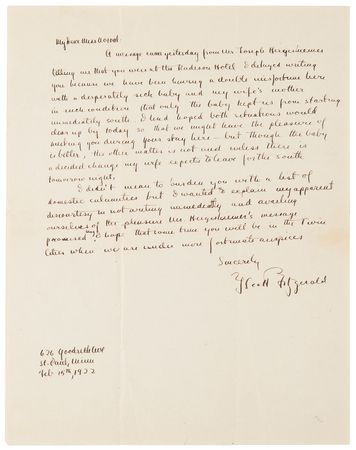 My dear Miss Wood:
A message came yesterday from Mrs Joseph Hergesheimer
telling me that you were at the Radison Hotel. I delayed writing
you because we have been having a double misfortune here
with a desperately sick baby and my wife's mother
in such condition that only the baby kept us from starting
immediately south. I had hoped both situations would
clear up by today so that we might have the pleasure of
meeting you during your stay here — but though the baby
is better, the other matter is not and unless there is
a decided change my wife expects to leave for the south
tomorrow night.
I didn't mean to burden you with a list of
domestic calamities but I wanted to explain my apparent
discourtesy in not writing immediately and availing
ourselves of the pleasure Mrs Hergesheimer's message
promised me. I hope that some time you will be in the Twin
Cities when we are under more fortunate auspices
Sincerely
F Scott Fitzgerald
626 Goodrich Ave
St. Paul, Minn
Feb 15th, 1922